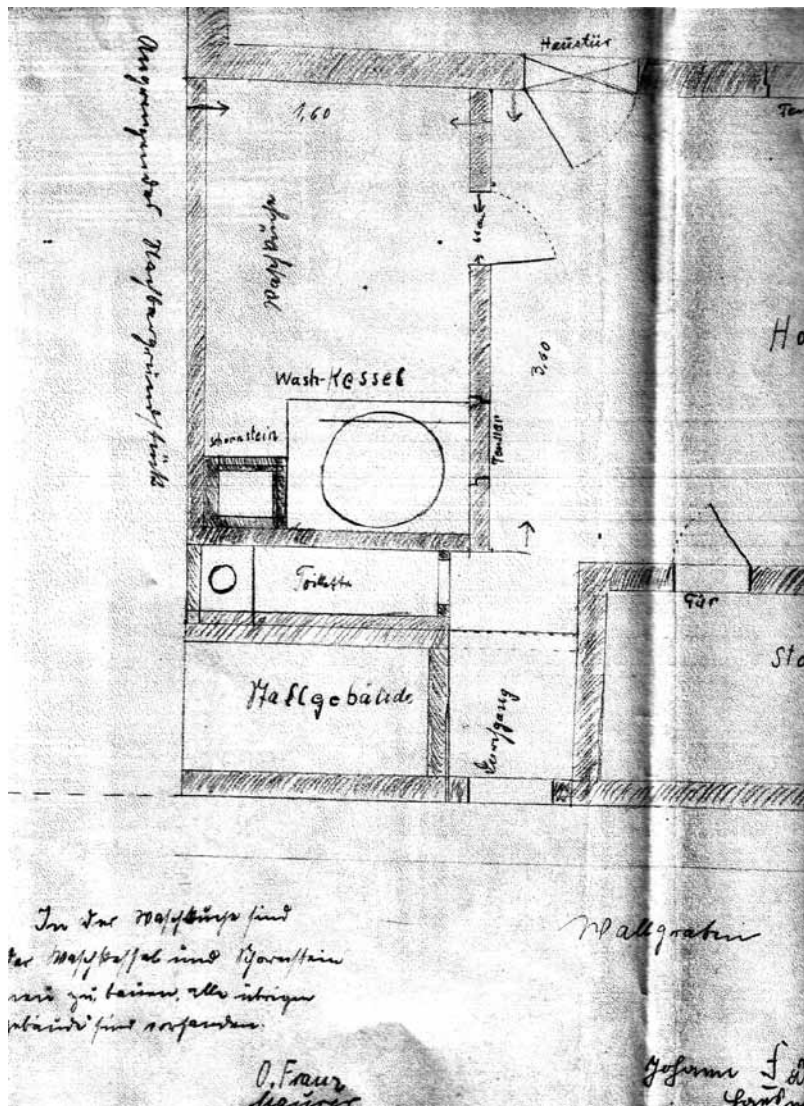 Haustür
Angrenzendes Nachbargrundstück
1,60
Waschküche
3,60
Wash-Kessel
Schornstein
Fenster
Toilette
Tür
Stallgebäude
Durchgang
In der Waschküche sind
der Waschkessel und Schornstein
neu zu bauen, alle übrigen
gebäude sind vorhanden.
Wallgraben
O. Franz
Maurer
Johann